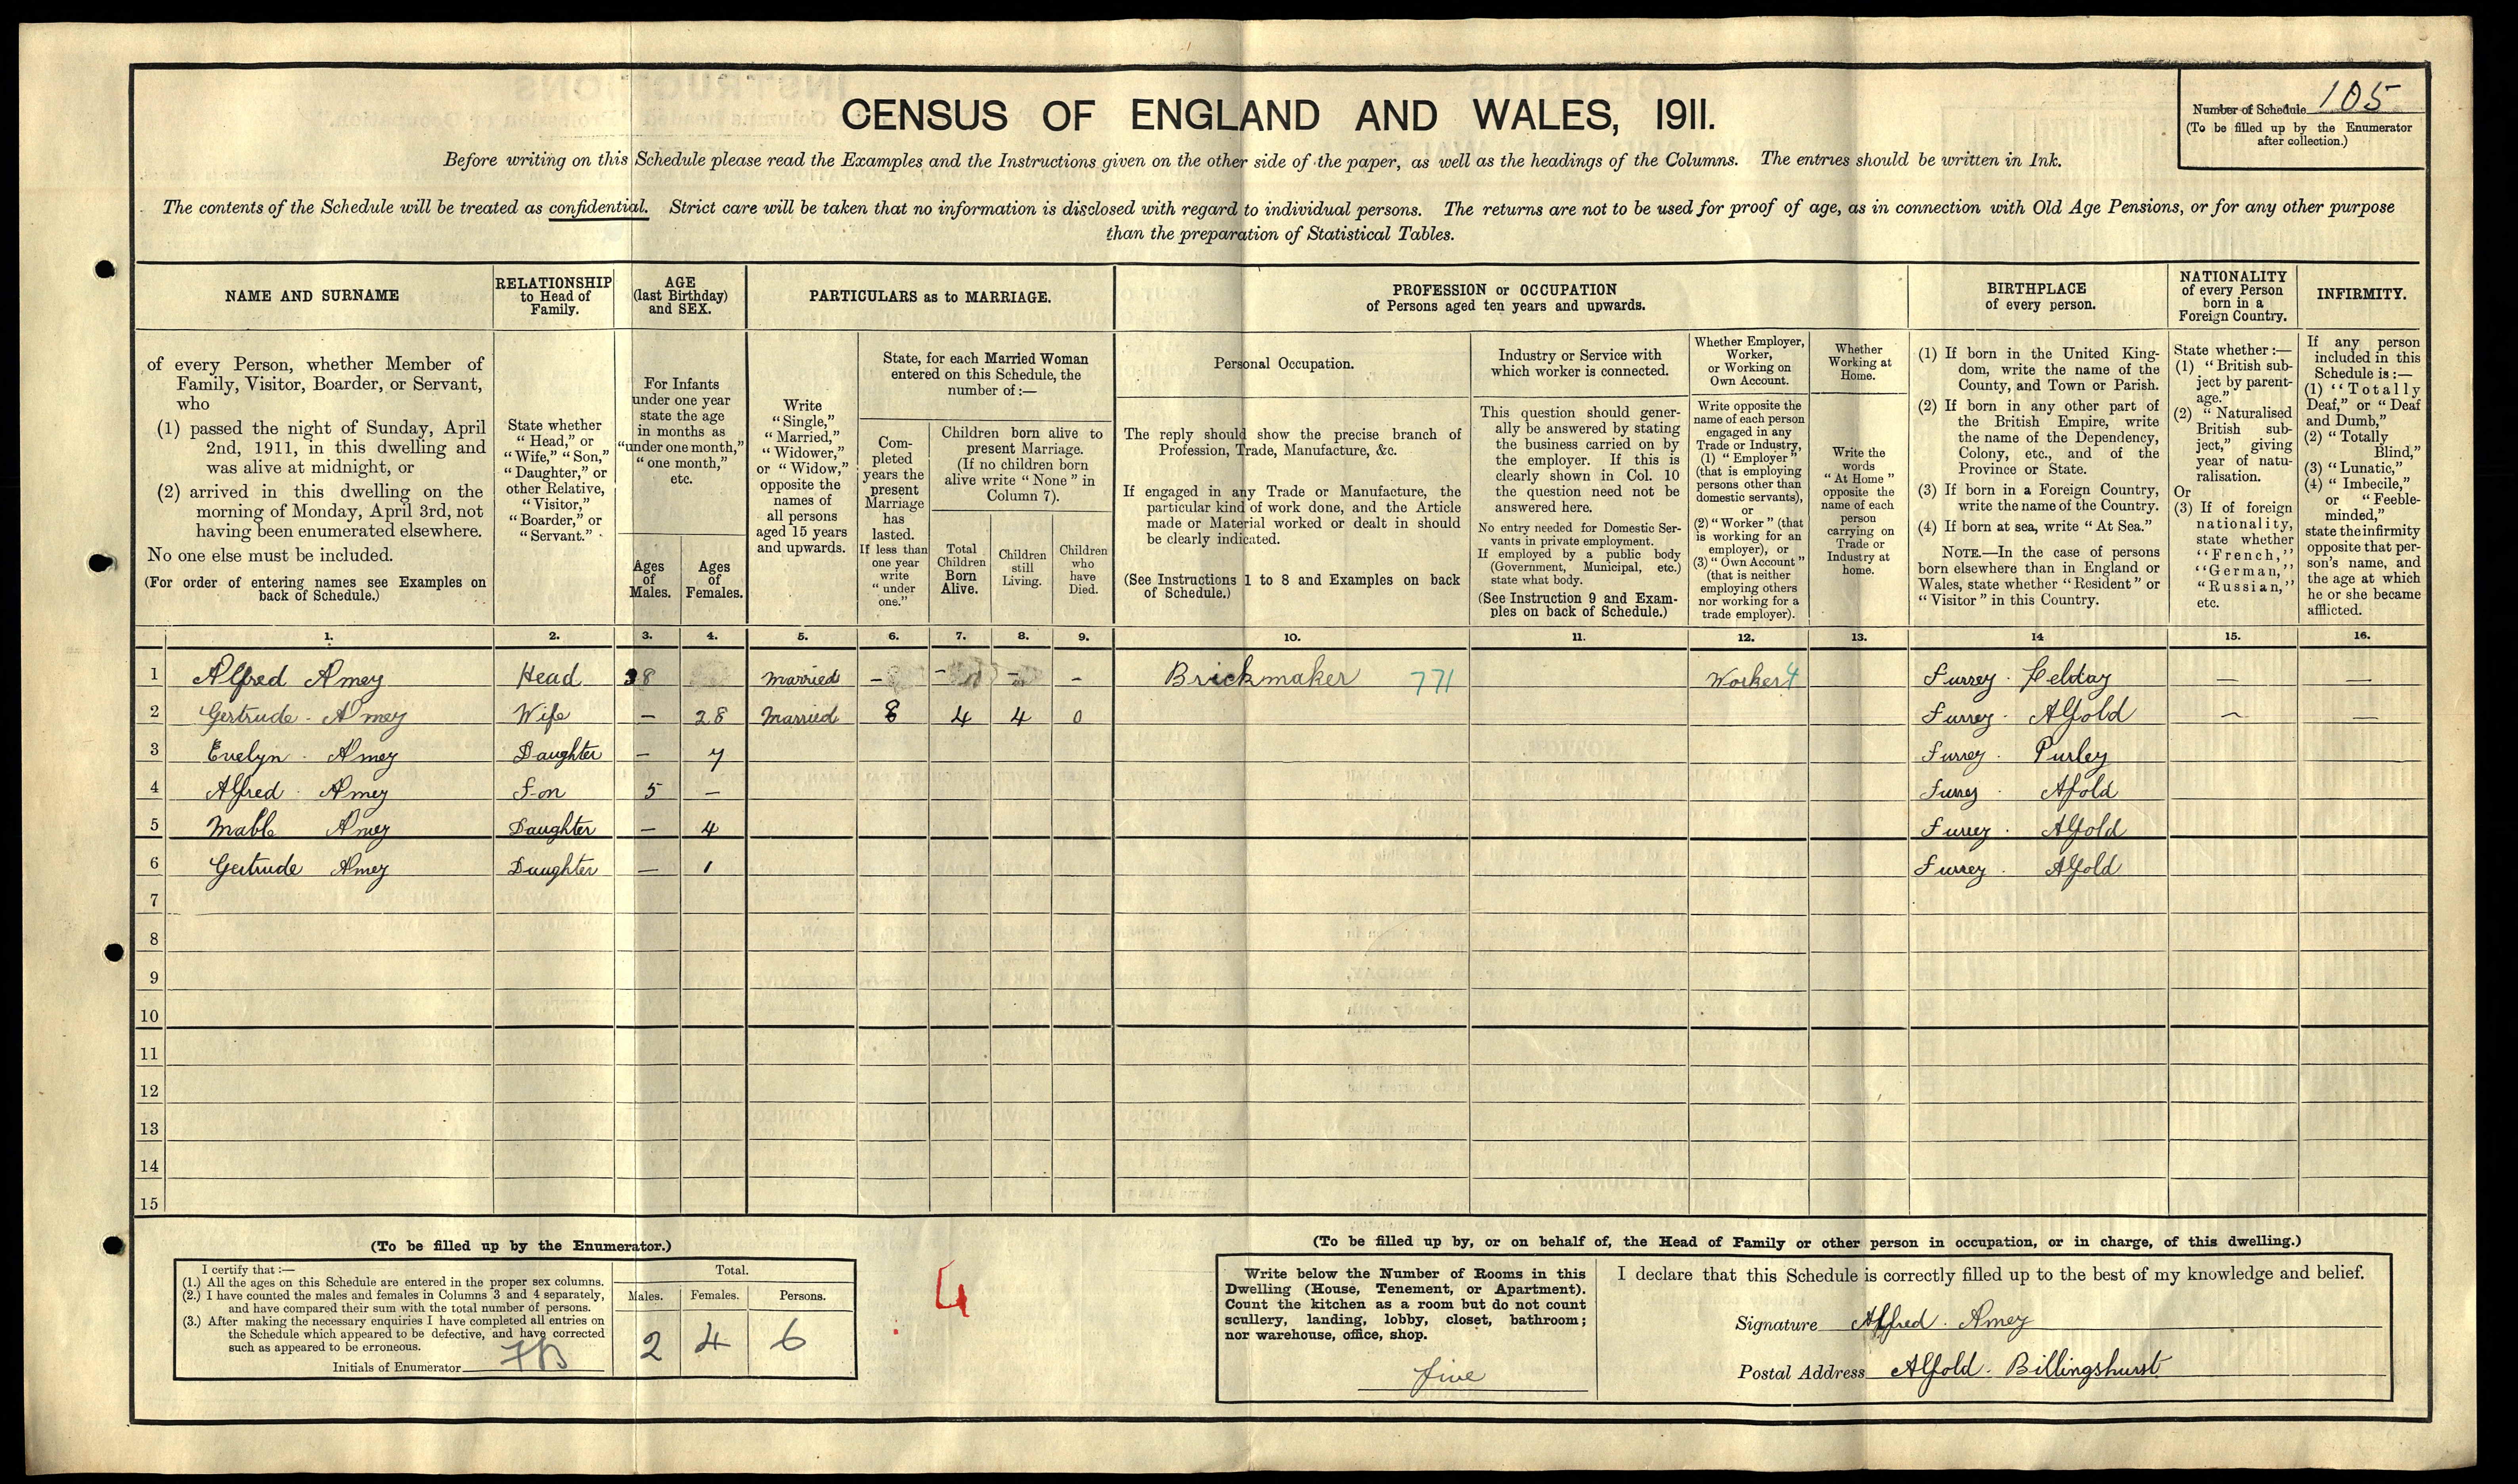 CENSUS OF ENGLAND AND WALES, 1911.
Number of Schedule 105
(To be filled up by the Enumerator
after collection.)
Before writing on this Schedule please read the Examples and the Instructions given on the other side of the paper, as well as the headings of the Columns. The entries should be written in Ink.
The contents of the Schedule will be treated as confidential. Strict care will be taken that no information is disclosed with regard to individual persons. The returns are not to be used for proof of age, as in connection with Old Age Pensions, or for any other purpose
than the preparation of Statistical Tables.
NAME AND SURNAME
RELATIONSHIP
to Head of
Family.
AGE
(last Birthday)
and SEX.
PARTICULARS as to MARRIAGE.
PROFESSION or OCCUPATION
of Persons aged ten years and upwards.
BIRTHPLACE
of every person.
NATIONALITY
of every Person
born in a
Foreign Country.
INFIRMITY.
of every Person, whether Member of
Family, Visitor, Boarder, or Servant,
who
(1) passed the night of Sunday, April
2nd, 1911, in this dwelling and
was alive at midnight, or
(2) arrived in this dwelling on the
morning of Monday, April 3rd, not
having been enumerated elsewhere.
No one else must be included.
(For order of entering names see Examples on
back of Schedule.)
State whether
"Head," or
"Wife," "Son,"
"Daughter," or
other Relative,
"Visitor,"
"Boarder," or
"Servant."
For Infants
under one year
state the age
in months as
"under one month,"
"one month,"
etc.
Ages
of
Males.
Ages
of
Females.
Write
"Single,"
"Married,"
"Widower,"
or "Widow,"
opposite the
names of
all persons
aged 15 years
and upwards.
State, for each Married Woman
entered on this Schedule, the
number of:—
Com-
pleted
years the
present
Marriage
has
lasted.
If less than
one year
write
"under
one."
Children born alive to
present Marriage.
(If no children born
alive write "None" in
Column 7).
Total
Children
Born
Alive.
Children
still
Living.
Children
who
have
Died.
Personal Occupation.
The reply should show the precise branch of
Profession, Trade, Manufacture, &c.
If engaged in any Trade or Manufacture, the
particular kind of work done, and the Article
made or Material worked or dealt in should
be clearly indicated.
(See Instructions 1 to 8 and Examples on back
of Schedule.)
Industry or Service with
which worker is connected.
This question should gener-
ally be answered by stating
the business carried on by
the employer. If this is
clearly shown in Col. 10
the question need not be
answered here.
No entry needed for Domestic Ser-
vants in private employment.
If employed by a public body
(Government, Municipal, etc.)
state what body.
(See Instruction 9 and Exam-
ples on back of Schedule.)
Whether Employer,
Worker,
or Working on
Own Account.
Write opposite the
name of each person
engaged in any
Trade or Industry,
(1) "Employer"
(that is employing
persons other than
domestic servants),
or
(2) "Worker" (that
is working for an
employer), or
(3) "Own Account"
(that is neither
employing others
nor working for a
trade employer).
Whether
Working at
Home.
Write the
words
"At Home"
opposite the
name of each
person
carrying on
Trade or
Industry at
home.
(1) If born in the United King-
dom, write the name of the
County, and Town or Parish.
(2) If born in any other part of
the British Empire, write
the name of the Dependency,
Colony, etc., and of the
Province or State.
(3) If born in a Foreign Country,
write the name of the Country.
(4) If born at sea, write "At Sea."
NOTE.—In the case of persons
born elsewhere than in England or
Wales, state whether "Resident" or
"Visitor" in this Country.
State whether:—
(1) "British sub-
ject by parent-
age."
(2) "Naturalised
British sub-
ject," giving
year of natu-
ralisation.
Or
(3) If of foreign
nationality,
state whether
"French,"
"German,"
"Russian,"
etc.
If any person
included in this
Schedule is:—
(1) "Totally
Deaf," or "Deaf
and Dumb,"
(2) "Totally
Blind,"
(3) "Lunatic,"
(4) "Imbecile,"
or "Feeble-
minded,"
state the infirmity
opposite that per-
son's name, and
the age at which
he or she became
afflicted.
1. 2. 3. 4. 5. 6. 7. 8. 9. 10. 11. 12. 13. 14 15. 16.
1 Alfred Amey Head 38 Married – – – – Brickmaker 771 Worker 4 Surrey. Felday — —
2 Gertrude. Amey Wife – 28 Married 8 4 4 0 Surrey. Alfold — —
3 Evelyn. Amey Daughter – 7 Surrey. Purley
4 Alfred. Amey Son 5 – Surrey. Afold
5 Mable Amey Daughter – 4 Surrey. Alfold
6 Gertrude Amey Daughter – 1 Surrey. Alfold
7
8
9
10
11
12
13
14
15
(To be filled up by the Enumerator.)
I certify that:—
(1.) All the ages on this Schedule are entered in the proper sex columns.
(2.) I have counted the males and females in Columns 3 and 4 separately,
and have compared their sum with the total number of persons.
(3.) After making the necessary enquiries I have completed all entries on
the Schedule which appeared to be defective, and have corrected
such as appeared to be erroneous.
Initials of Enumerator
Total.
Males. Females. Persons.
2 4 6
4
(To be filled up by, or on behalf of, the Head of Family or other person in occupation, or in charge, of this dwelling.)
Write below the Number of Rooms in this
Dwelling (House, Tenement, or Apartment).
Count the kitchen as a room but do not count
scullery, landing, lobby, closet, bathroom;
nor warehouse, office, shop.
five
I declare that this Schedule is correctly filled up to the best of my knowledge and belief.
Signature Alfred. Amey
Postal Address Alfold. Billingshurst